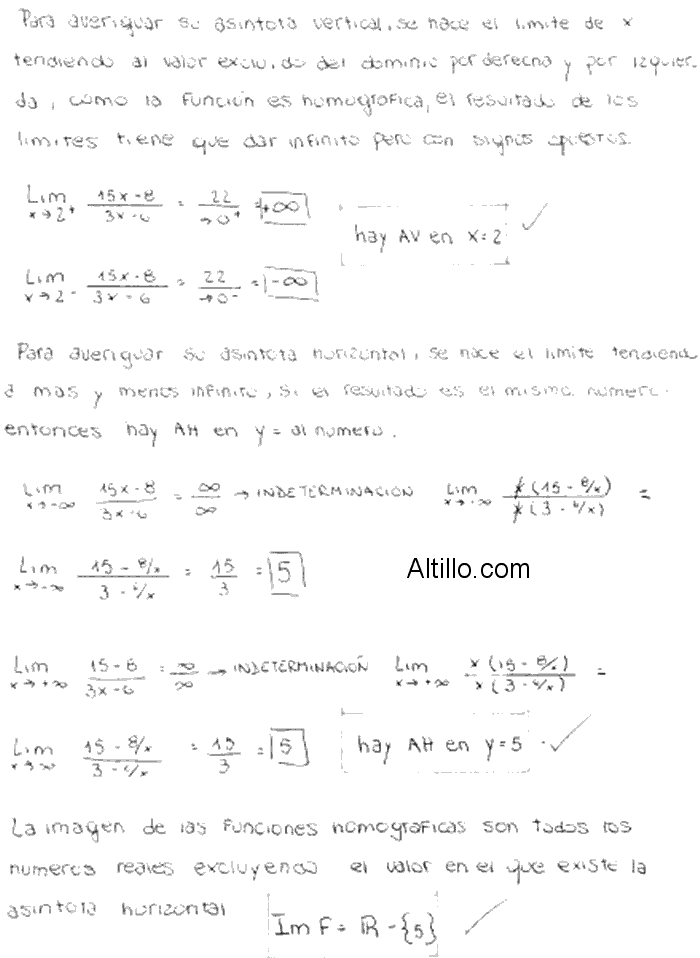 Para averiguar su asintota vertical, se hace el limite de x
tendiendo al valor excluido del dominio por derecha y por izquier-
da, como la función es homografica, el resultado de los
limites tiene que dar infinito pero con signos opuestos.
Lim x→2⁺ (15x-8)/(3x-6) = 22/→0⁺ = +∞
hay AV en x=2 ✓
Lim x→2⁻ (15x-8)/(3x-6) = 22/→0⁻ = -∞
Para averiguar su asintota horizontal, se hace el limite tendiendo
a mas y menos infinito, si el resultado es el mismo numero
entonces hay AH en y = al numero.
Lim x→-∞ (15x-8)/(3x-6) = ∞/∞ → INDETERMINACIÓN Lim x→-∞ x(15-8/x)/x(3-6/x) =
Lim x→-∞ (15-8/x)/(3-6/x) = 15/3 = 5
Altillo.com
Lim x→+∞ (15-8)/(3x-6) = ∞/∞ → INDETERMINACIÓN Lim x→+∞ x(15-8/x)/x(3-6/x) =
Lim x→∞ (15-8/x)/(3-6/x) = 15/3 = 5
hay AH en y=5 ✓
La imagen de las funciones homograficas son todos los
numeros reales excluyendo el valor en el que existe la
asintota horizontal
Im F = ℝ - {5} ✓